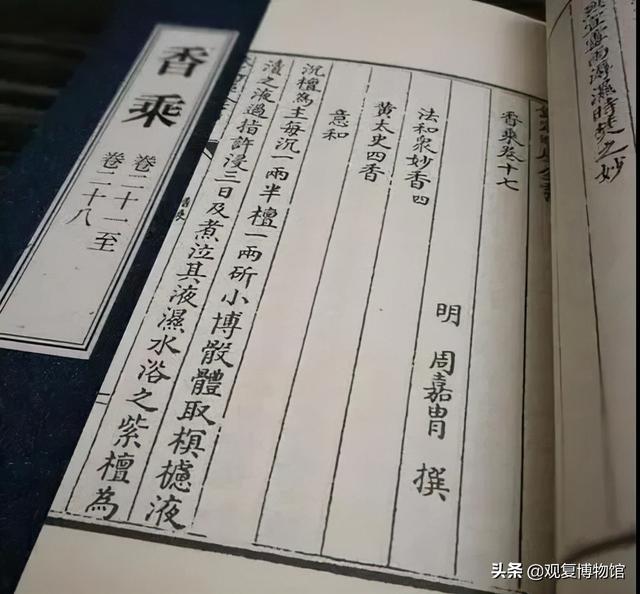 香乘
卷二十一至
卷二十八
時焚之妙
香乘卷十七
明 周嘉胄 撰
法和眾妙香四
黄太史四香
意和
沉檀為主每沉一兩半檀一兩斫小博骰體取榠樝液
漬之液過指許浸三日及煮泣其液濕水浴之紫檀為
头条 @观复博物馆